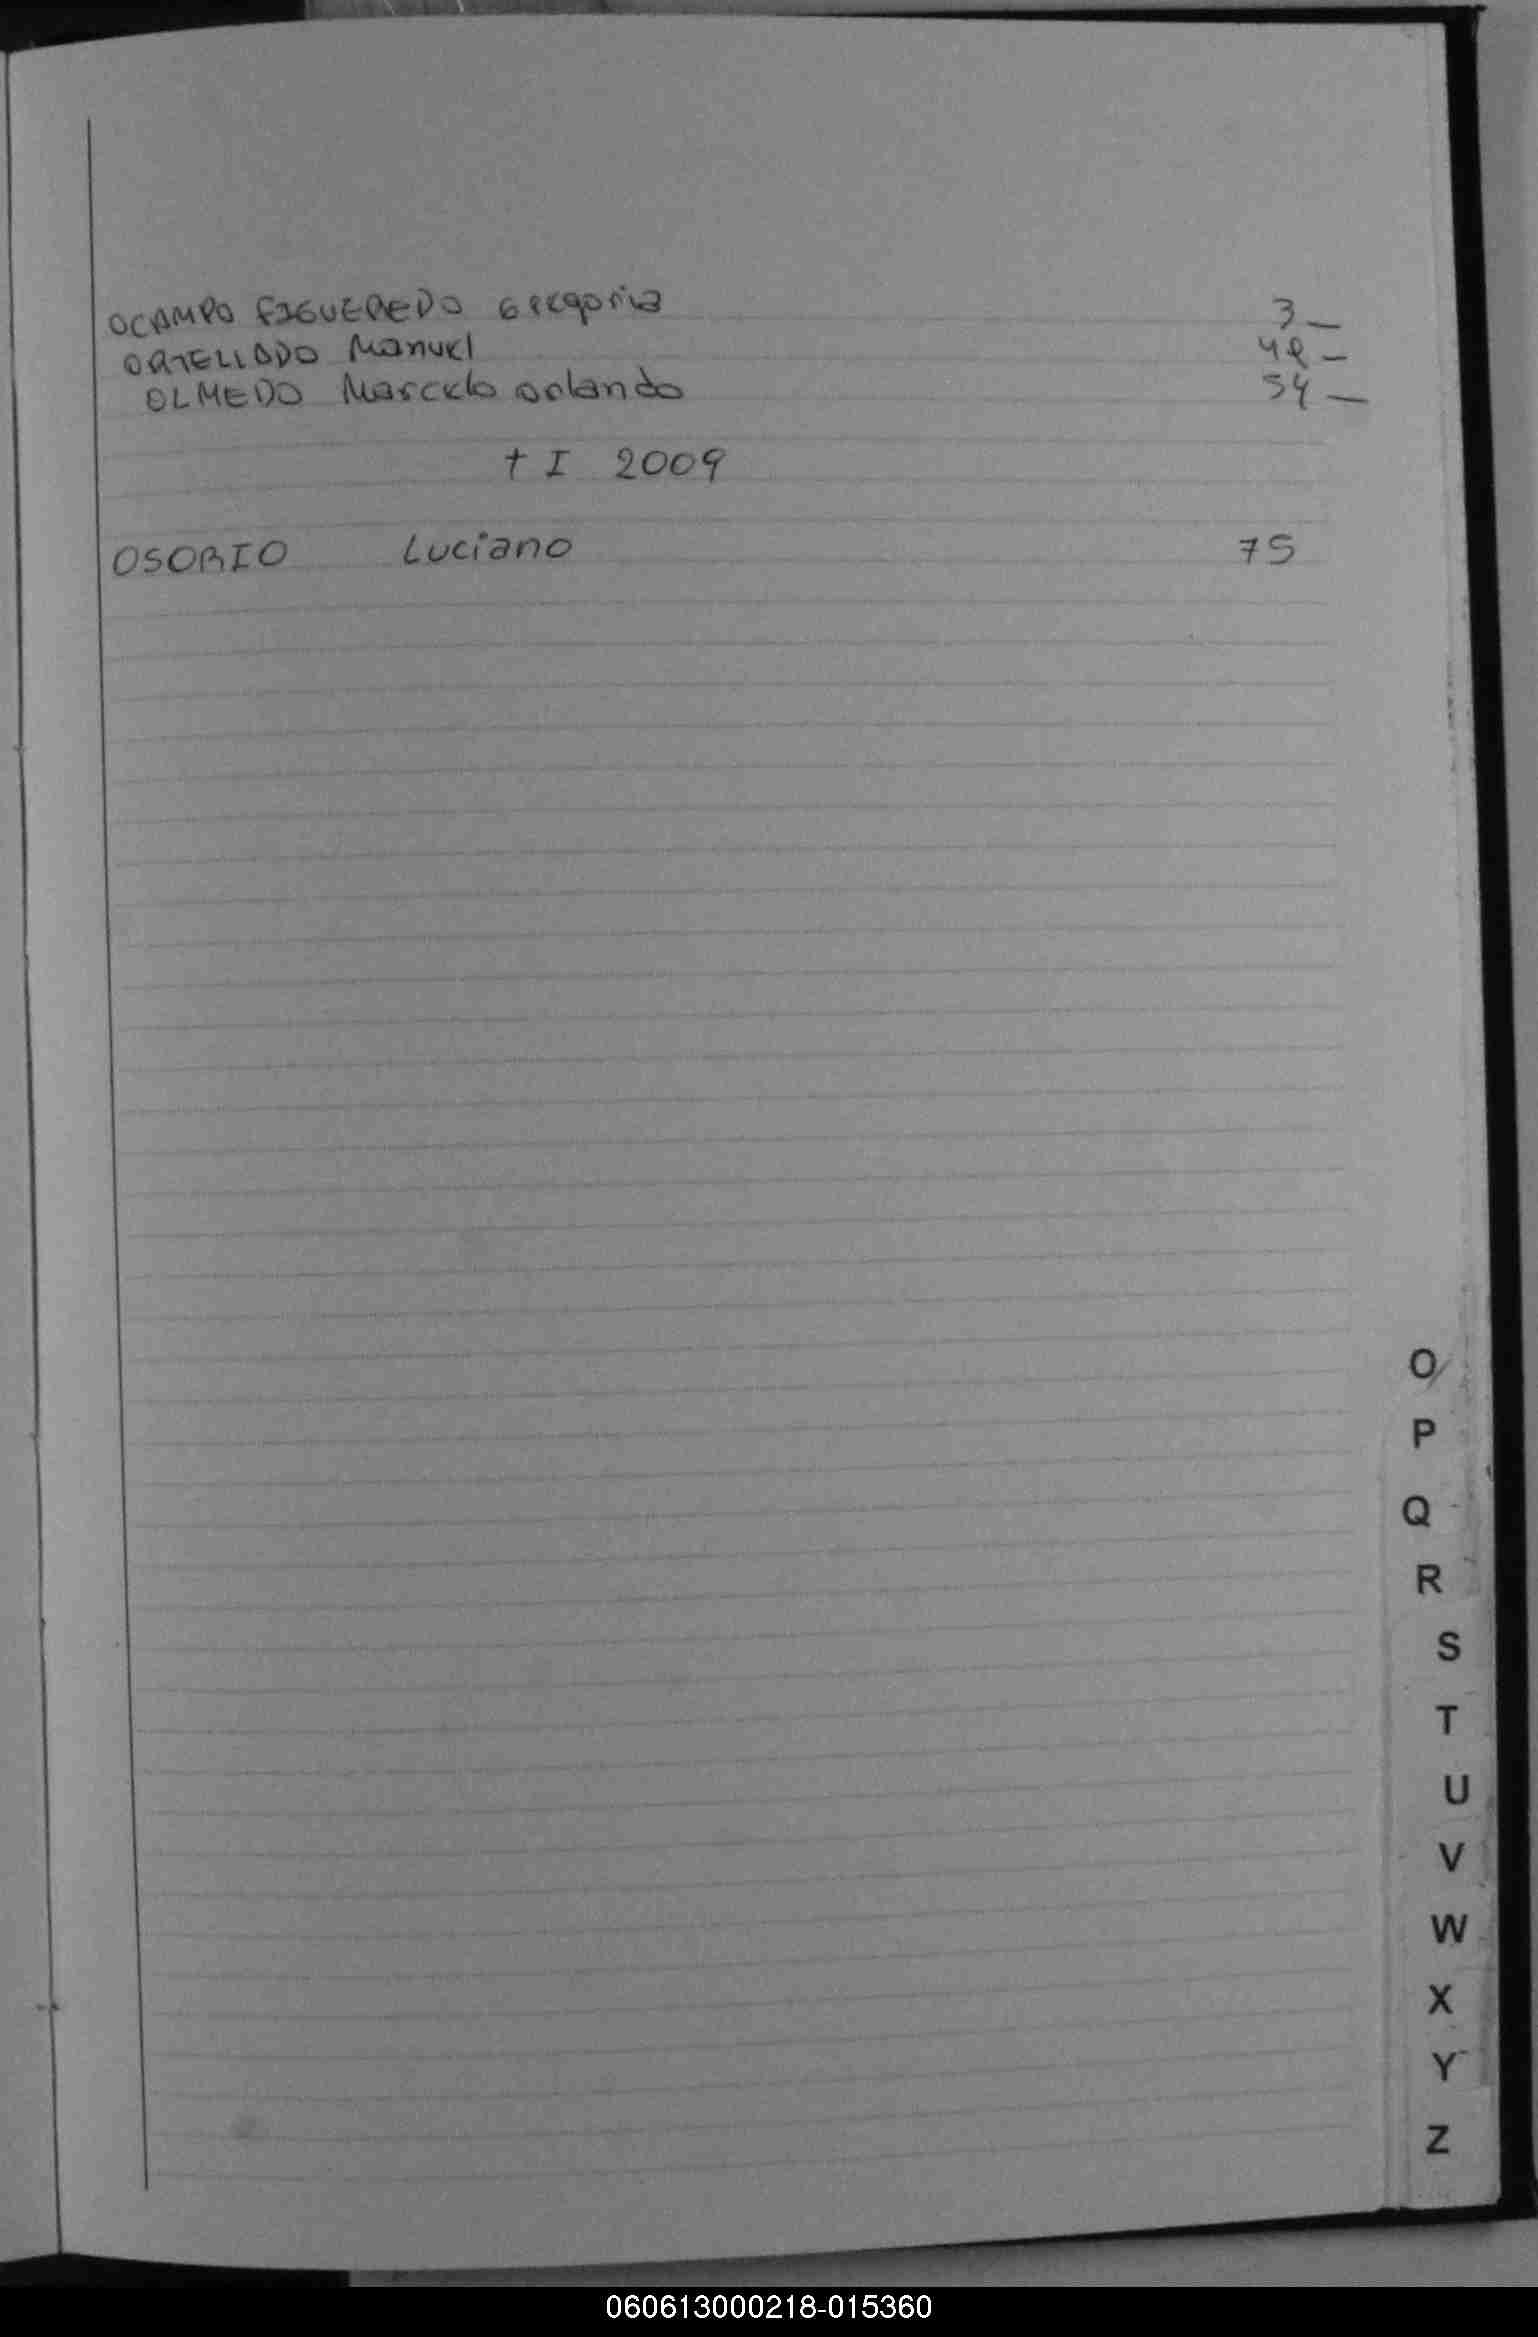 OCAMPO FIGUEREDO Gregoria 3 —
ORTELLADO Manuel 48 —
OLMEDO Marcelo Orlando 54 —
† I 2009
OSORIO Luciano 75
O
P
Q
R
S
T
U
V
W
X
Y
Z
060613000218-015360